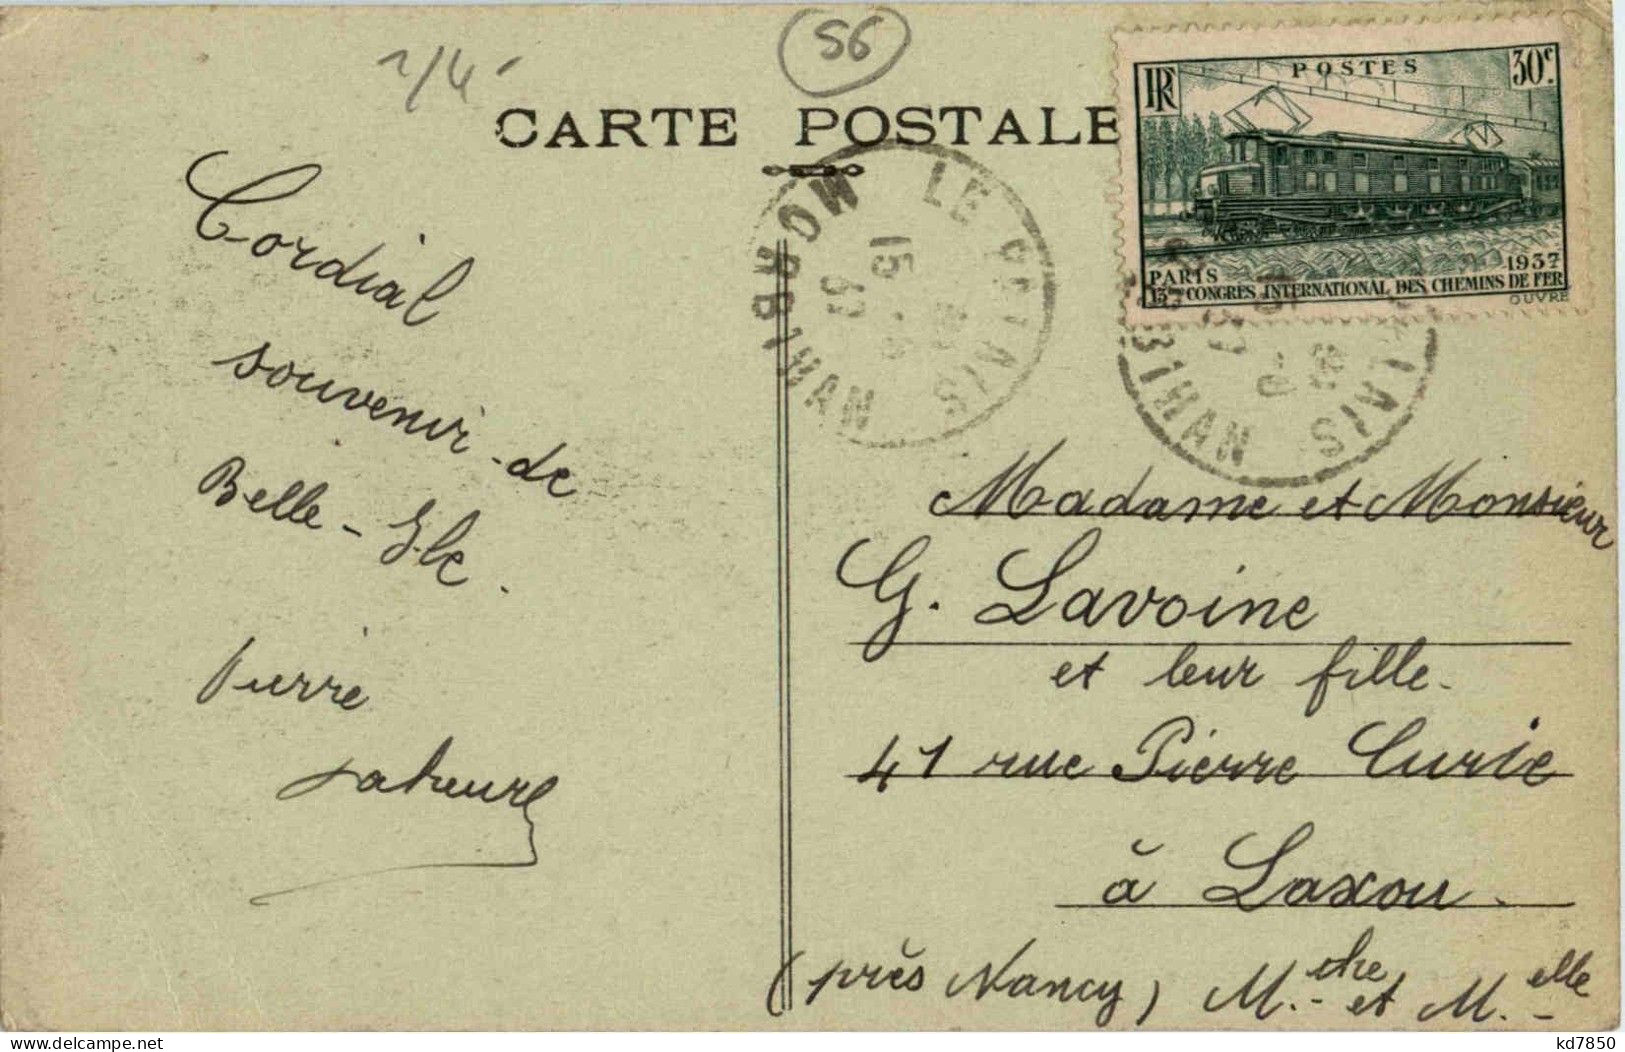 56
CARTE POSTALE
RF
POSTES
30c.
PARIS
1937
13ème CONGRES INTERNATIONAL DES CHEMINS DE FER
OUVRÉ
LE PALAIS
15
37
MORBIHAN
LAIS
37
BIHAN
Cordial
souvenir de
Belle-Ile.
Pierre
Madame et Monsieur
G. Lavoine
et leur fille.
41 rue Pierre Curie
à Laxou.
(près Nancy) M.the et M.elle
kd7850